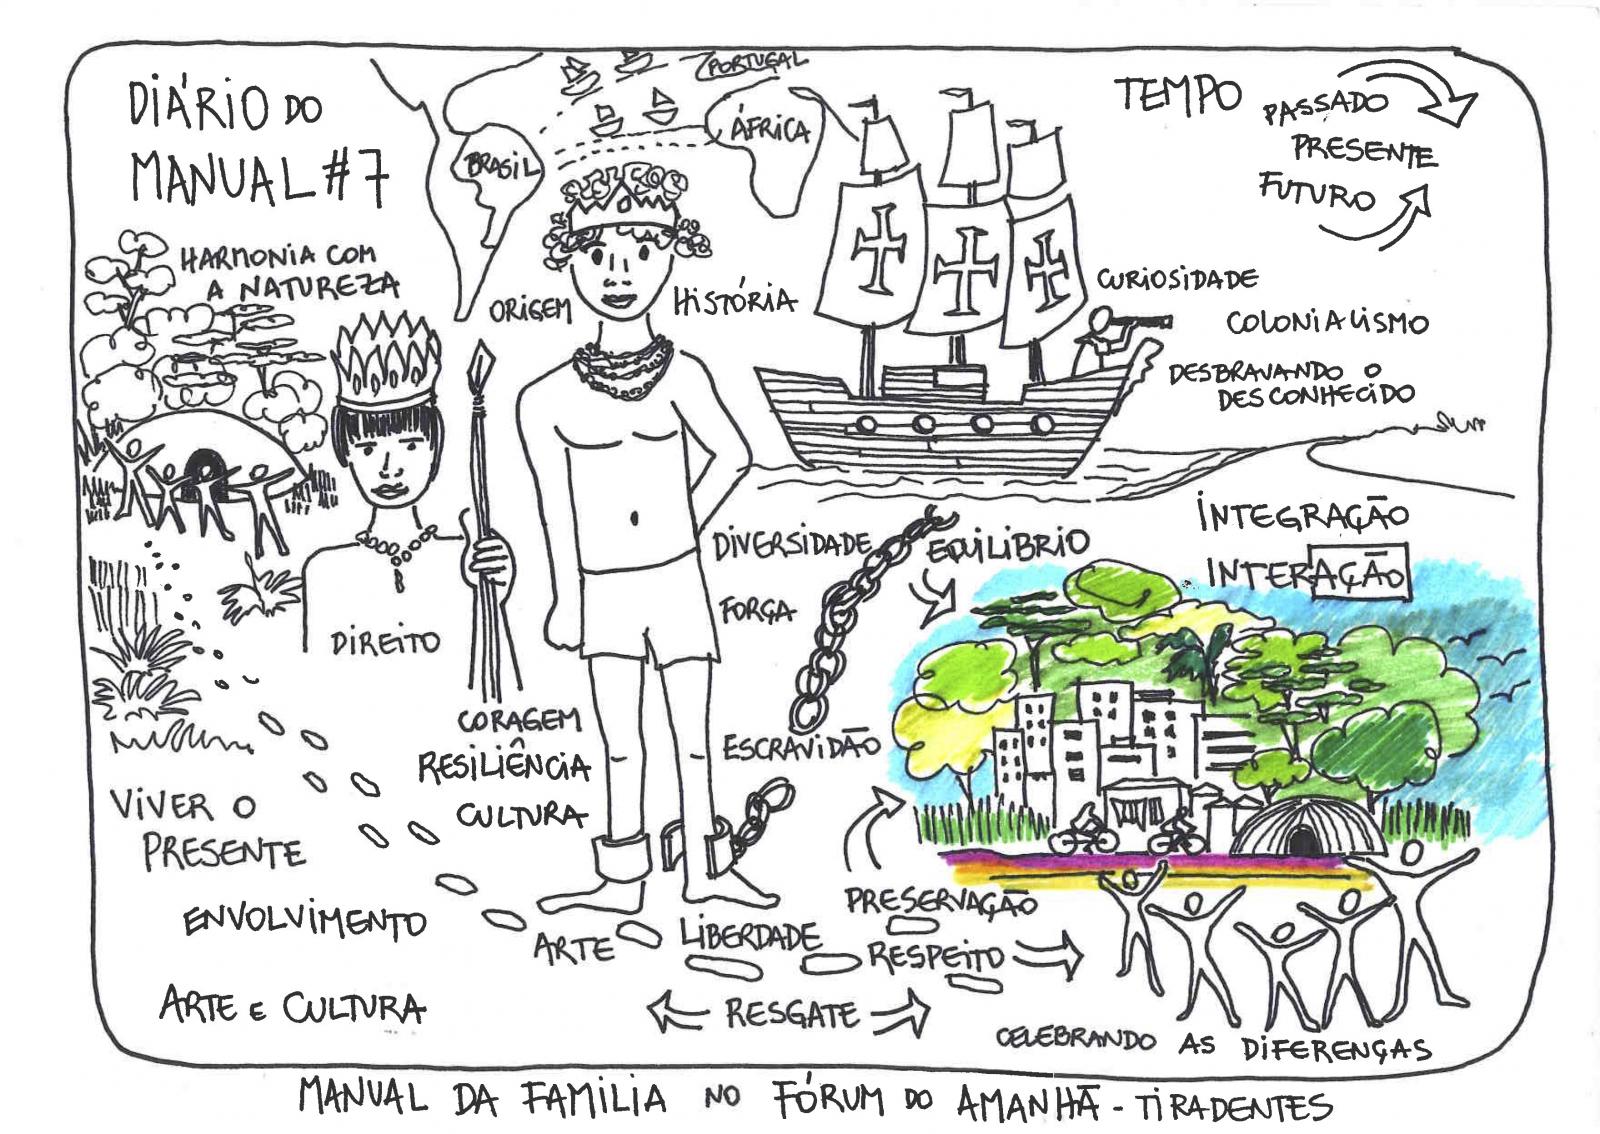 DIÁRIO DO
MANUAL #7
PORTUGAL
BRASIL
ÁFRICA
TEMPO
PASSADO
PRESENTE
FUTURO
HARMONIA COM
A NATUREZA
ORIGEM
HISTÓRIA
CURIOSIDADE
COLONIALISMO
DESBRAVANDO O
DESCONHECIDO
INTEGRAÇÃO
INTERAÇÃO
DIVERSIDADE
EQUILIBRIO
FORÇA
DIREITO
CORAGEM
RESILIÊNCIA
CULTURA
ESCRAVIDÃO
VIVER O
PRESENTE
ENVOLVIMENTO
ARTE
LIBERDADE
PRESERVAÇÃO
RESPEITO
ARTE E CULTURA
RESGATE
CELEBRANDO AS DIFERENÇAS
MANUAL DA FAMILIA NO FÓRUM DO AMANHÃ - TIRADENTES